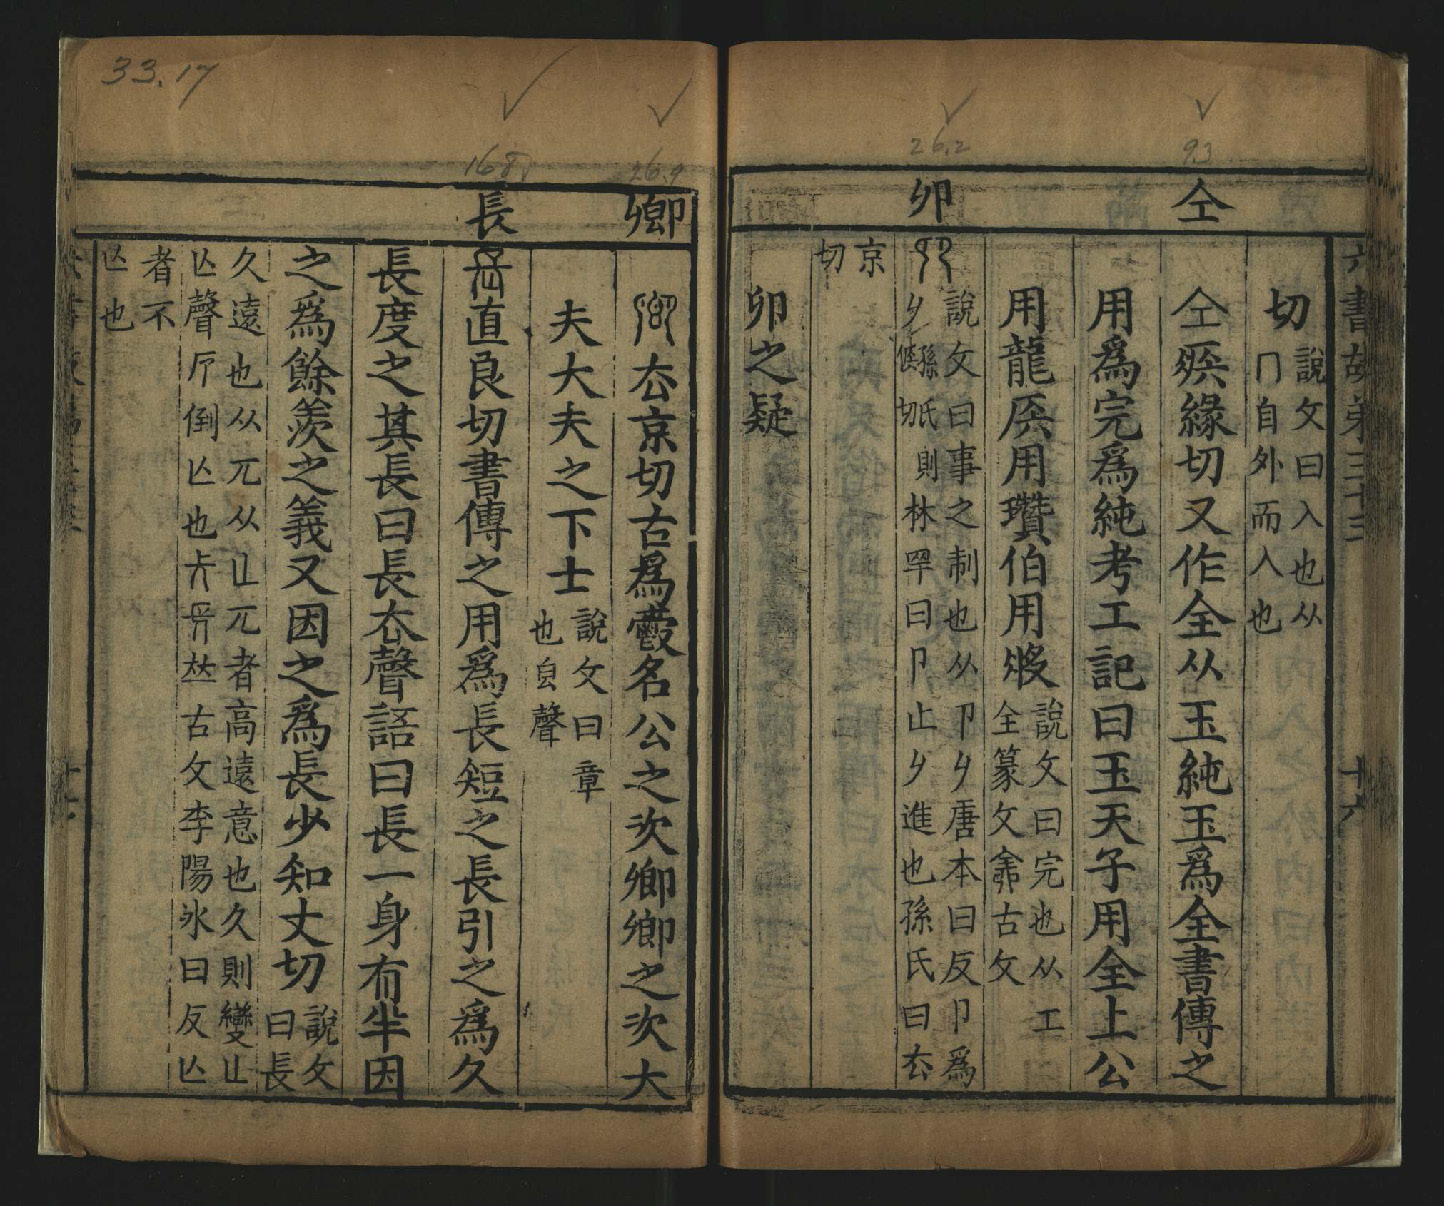 33.17
93
26.2
168
26.9
仝
卯
卿
長
六書故弟三十三
十六
切
說文曰入也从
冂自外而入也
仝㱾緣切又作全从玉純玉爲全書傳之
用爲完爲純考工記曰玉天子用全上公
用龍𥎦用瓚伯用𤖕
說文曰完也从工
全篆文𠓴古文
說文曰事之制也从卩𠂎唐本曰反卩爲
𠂎孫氏則林罕曰卩止𠂎進也孫氏曰厺
愐切
京
切
卯之疑
厺京切古爲爵名公之次卿卿之次大
夫大夫之下士
說文曰章
也皀聲
直良切書傳之用爲長短之長引之爲久
長度之其長曰長厺聲語曰長一身有半因
之爲餘羨之義又因之爲長少知丈切
說文
曰長
久遠也从兀从𠤎兀者高遠意也久則變𠤎
亾聲𠂆倒亾也𠑷𠔊𠀋古文李陽氷曰反亾
者不
亾也